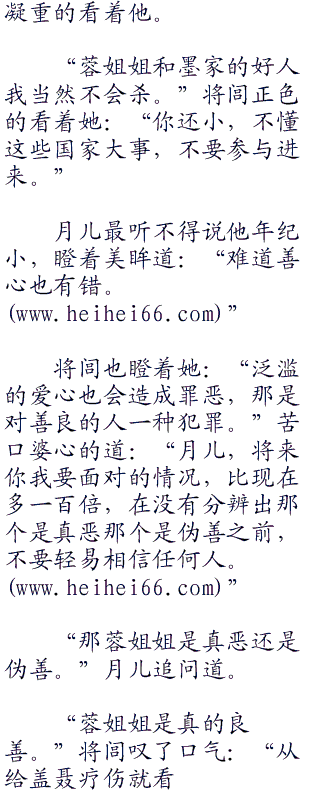 凝重的看着他。
“蓉姐姐和墨家的好人
我当然不会杀。”将闾正色
的看着她：“你还小，不懂
这些国家大事，不要参与进
来。”
月儿最听不得说他年纪
小，瞪着美眸道：“难道善
心也有错。
(www.heihei66.com)”
将闾也瞪着她：“泛滥
的爱心也会造成罪恶，那是
对善良的人一种犯罪。”苦
口婆心的道：“月儿，将来
你我要面对的情况，比现在
多一百倍，在没有分辨出那
个是真恶那个是伪善之前，
不要轻易相信任何人。
(www.heihei66.com)”
“那蓉姐姐是真恶还是
伪善。”月儿追问道。
“蓉姐姐是真的良
善。”将闾叹了口气：“从
给盖聂疗伤就看